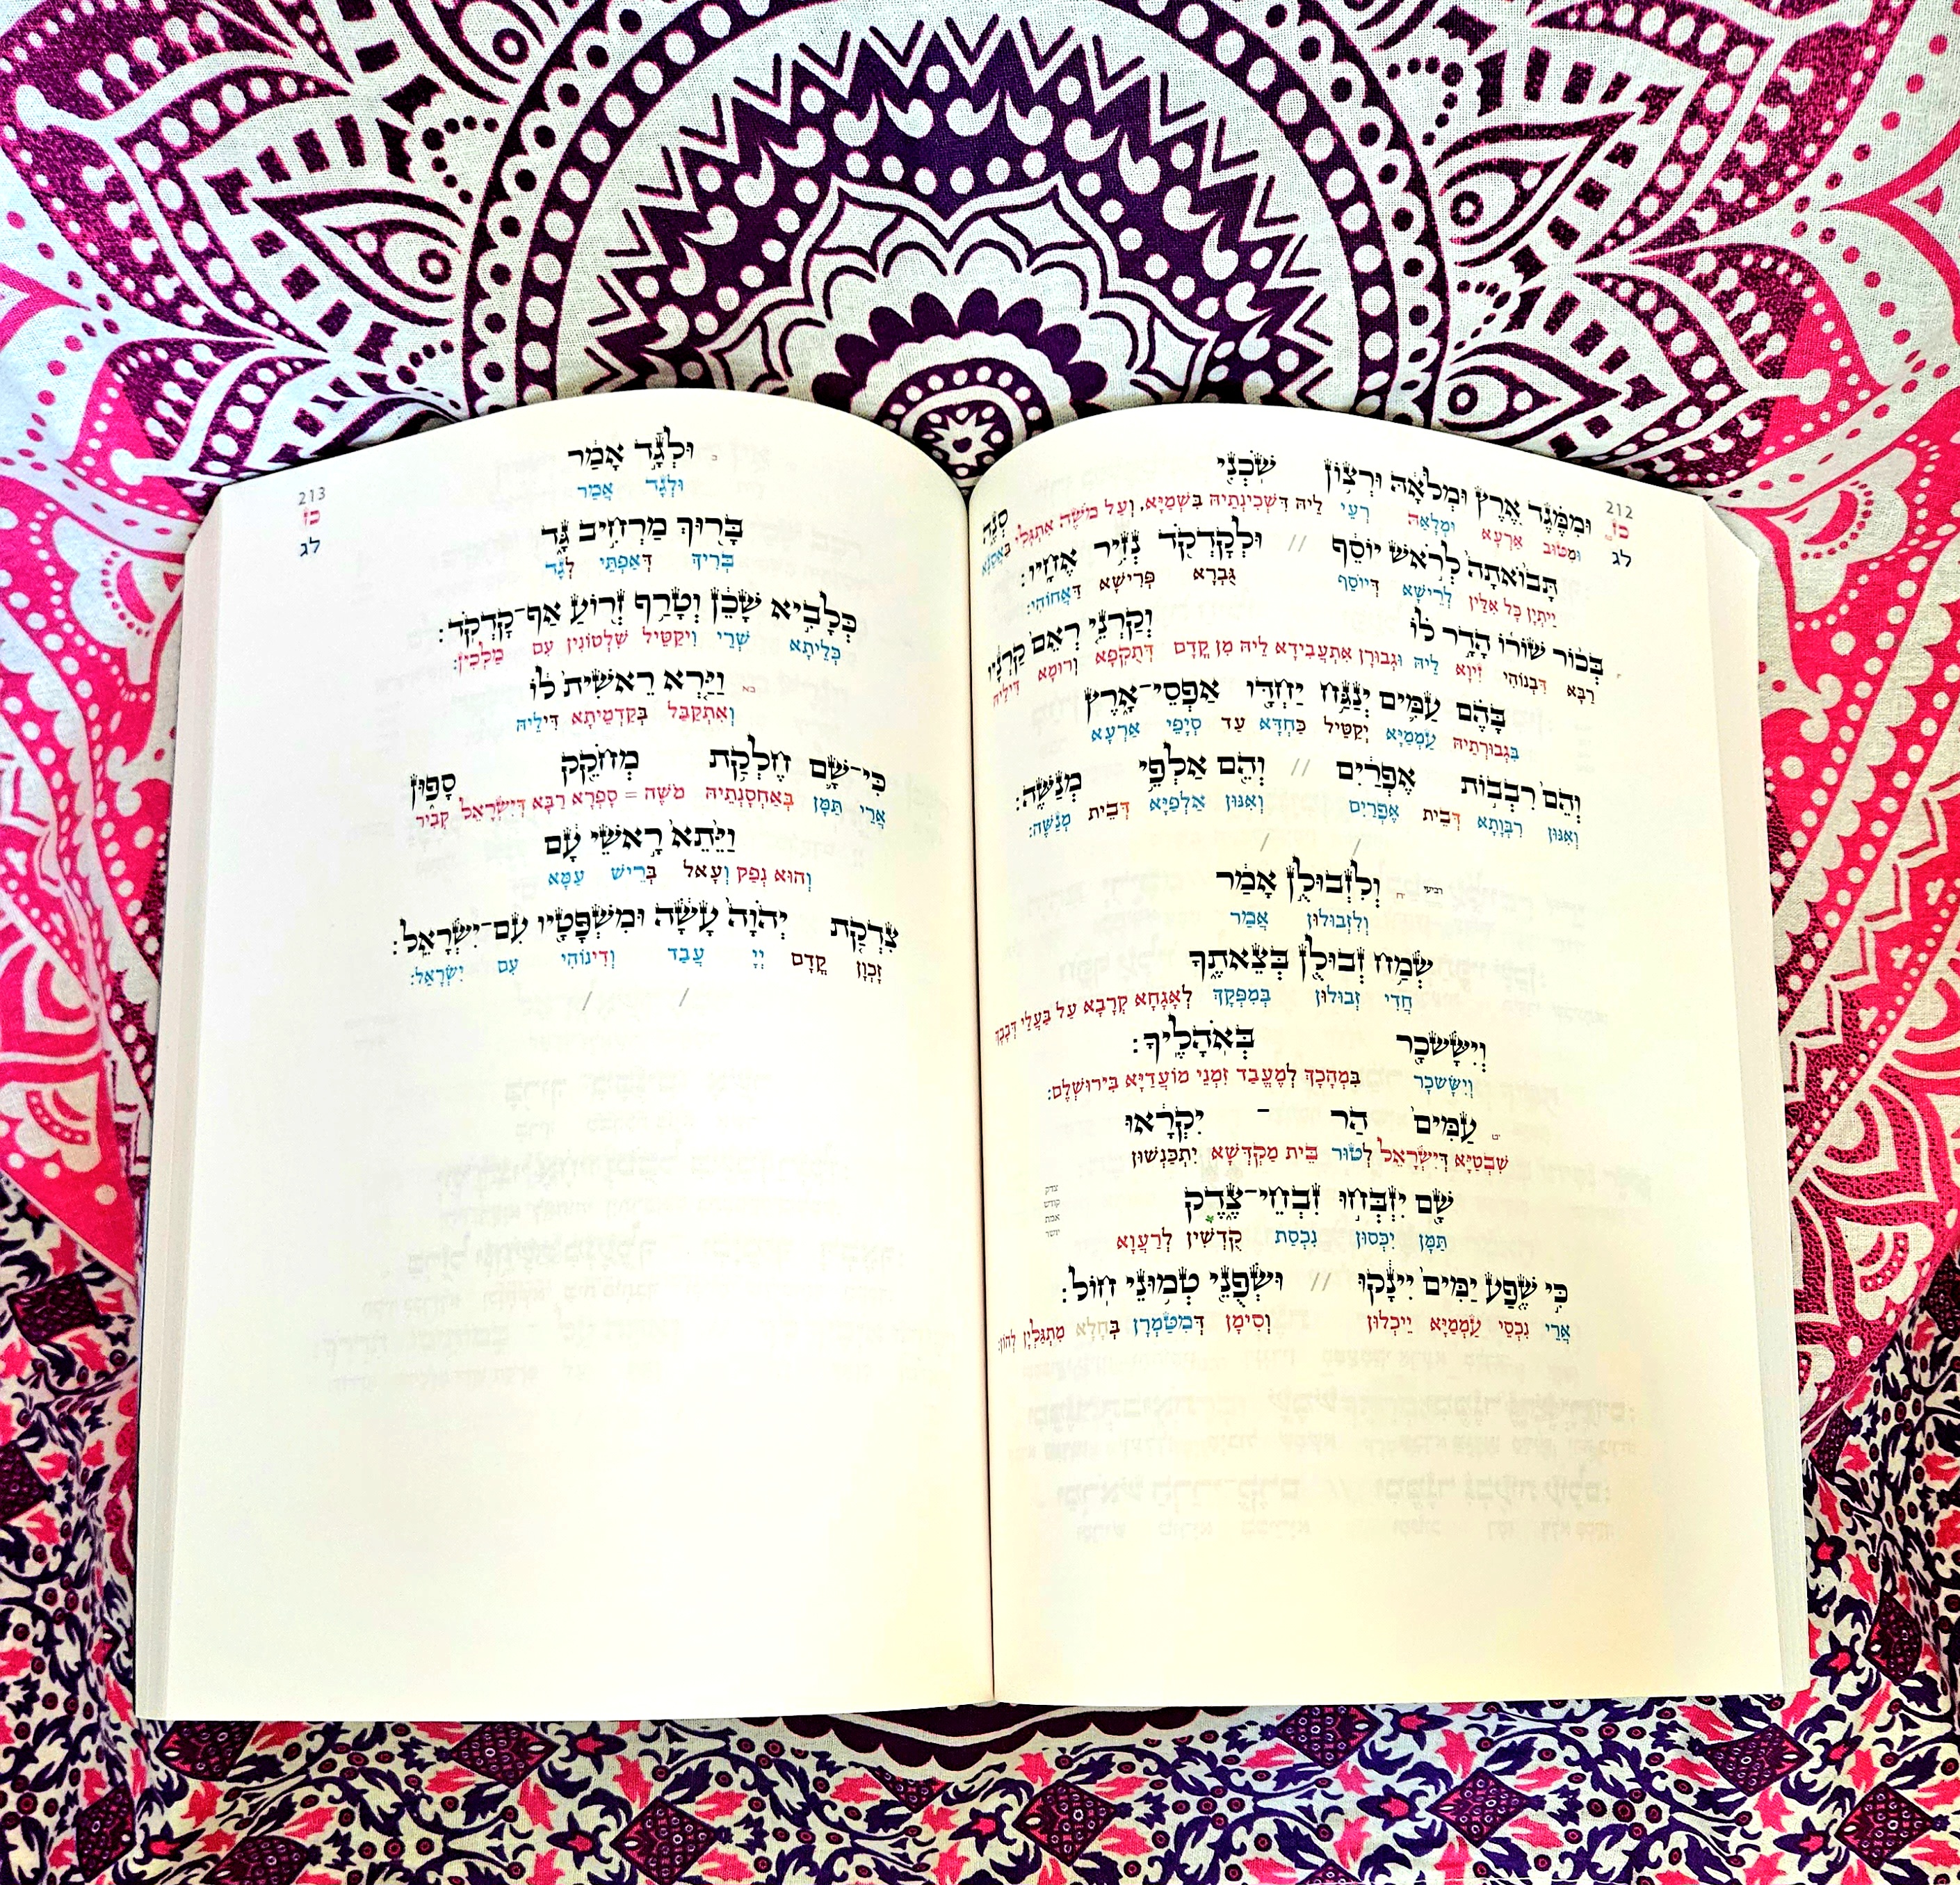 212
כז
לג
וּמִמֶּ֗גֶד אֶ֚רֶץ וּמְלֹאָ֔הּ וּרְצ֥וֹן שֹׁכְנִ֖י סְנֶ֑ה
וּמִטּוּב אַרְעָא וּמְלָאַהּ רְעֵי לֵיהּ דִּשְׁכִינְתֵיהּ בִּשְׁמַיָּא, וְעַל מֹשֶׁה אִתְגְּלִי בְּאַסְנָא
תָּב֙וֹאתָה֙ לְרֹ֣אשׁ יוֹסֵ֔ף // וּלְקׇדְקֹ֖ד נְזִ֥יר אֶחָֽיו׃
יֵיתְיָן כָּל אִלֵּין לְרֵישָׁא דְּיוֹסֵף גֻּבְרָא פְּרִישָׁא דַּאֲחוֹהִי׃
בְּכ֨וֹר שׁוֹר֜וֹ הָדָ֣ר ל֗וֹ וְקַרְנֵ֤י רְאֵם֙ קַרְנָ֔יו
רַבָּא דִּבְנוֹהִי זִיוָא לֵיהּ וּגְבוּרָן אִתְעֲבִידָא לֵיהּ מִן קֳדָם דְּתֻקְפָּא וְרוּמָא דִּילֵיהּ
בָּהֶ֗ם עַמִּ֛ים יְנַגַּ֥ח יַחְדָּ֖ו אַפְסֵי־אָ֑רֶץ
בִּגְבוּרְתֵיהּ עַמְמַיָּא יְקַטֵּיל כַּחְדָּא עַד סְיָפֵי אַרְעָא
וְהֵם֙ רִבְב֣וֹת אֶפְרַ֔יִם // וְהֵ֖ם אַלְפֵ֥י מְנַשֶּֽׁה׃
וְאִנּוּן רִבְּוָתָא דְּבֵית אֶפְרַיִם וְאִנּוּן אַלְפַיָּא דְּבֵית מְנַשֶּׁה׃
/ /
רביעי יח וְלִזְבוּלֻ֣ן אָמַ֔ר
וְלִזְבוּלוּן אֲמַר
שְׂמַ֥ח זְבוּלֻ֖ן בְּצֵאתֶ֑ךָ
חֲדִי זְבוּלוּן בְּמִפְּקָךְ לְאָגָחָא קְרָבָא עַל בַּעֲלֵי דְּבָבָךְ
וְיִשָּׂשכָ֖ר בְּאֹהָלֶֽיךָ׃
וְיִשָּׂשכָר בִּמְהָכָךְ לְמֶעֱבַד זִמְנֵי מוֹעֲדַיָּא בִּירוּשְׁלֶם׃
יט עַמִּים֙ הַר־יִקְרָ֔אוּ
שִׁבְטַיָּא דְּיִשְׂרָאֵל לְטוּר בֵּית מַקְדְּשָׁא יִתְכַּנְשׁוּן
שָׁ֖ם יִזְבְּח֣וּ זִבְחֵי־צֶ֑דֶק
תַּמָּן יִכְּסוּן נִכְסַת קֻדְשִׁין לְרַעֲוָא
כִּ֣י שֶׁ֤פַע יַמִּים֙ יִינָ֔קוּ // וּשְׂפֻנֵ֖י טְמ֥וּנֵי חֽוֹל׃
אֲרֵי נִכְסֵי עַמְמַיָּא יֵיכְלוּן וְסִימָן דְּמִטַּמְרָן בְּחָלָא מִתְגַּלְיָן לְהוֹן׃
213
כז
לג
כ וּלְגָ֣ד אָמַ֔ר
וּלְגָד אֲמַר
בָּר֖וּךְ מַרְחִ֣יב גָּ֑ד
בְּרִיךְ דְּאַפְתִּי לְגָד
כְּלָבִ֣יא שָׁכֵ֔ן וְטָרַ֥ף זְר֖וֹעַ אַף־קׇדְקֹֽד׃
כְּלֵיתָא שְׁרֵי וְיִקַטֵּיל שִׁלְטוֹנִין עִם מַלְכִין׃
כא וַיַּ֤רְא רֵאשִׁית֙ ל֔וֹ
וְאִתְקַבַּל בְּקַדְמֵיתָא דִּילֵיהּ
כִּי־שָׁ֛ם חֶלְקַ֥ת מְחֹקֵ֖ק סָפ֑וּן
אֲרֵי תַּמָּן בְּאַחְסָנְתֵיהּ מֹשֶׁה = סָפְרָא רַבָּא דְּיִשְׂרָאֵל קְבִיר
וַיֵּתֵא֙ רָ֣אשֵׁי עָ֔ם
וְהוּא נְפַק וְעָאל בְּרֵישׁ עַמָּא
צִדְקַ֤ת יְהֹוָה֙ עָשָׂ֔ה וּמִשְׁפָּטָ֖יו עִם־יִשְׂרָאֵֽל׃
זָכְוָן קֳדָם יְיָ עֲבַד וְדִינוֹהִי עִם יִשְׂרָאֵל׃
/ /